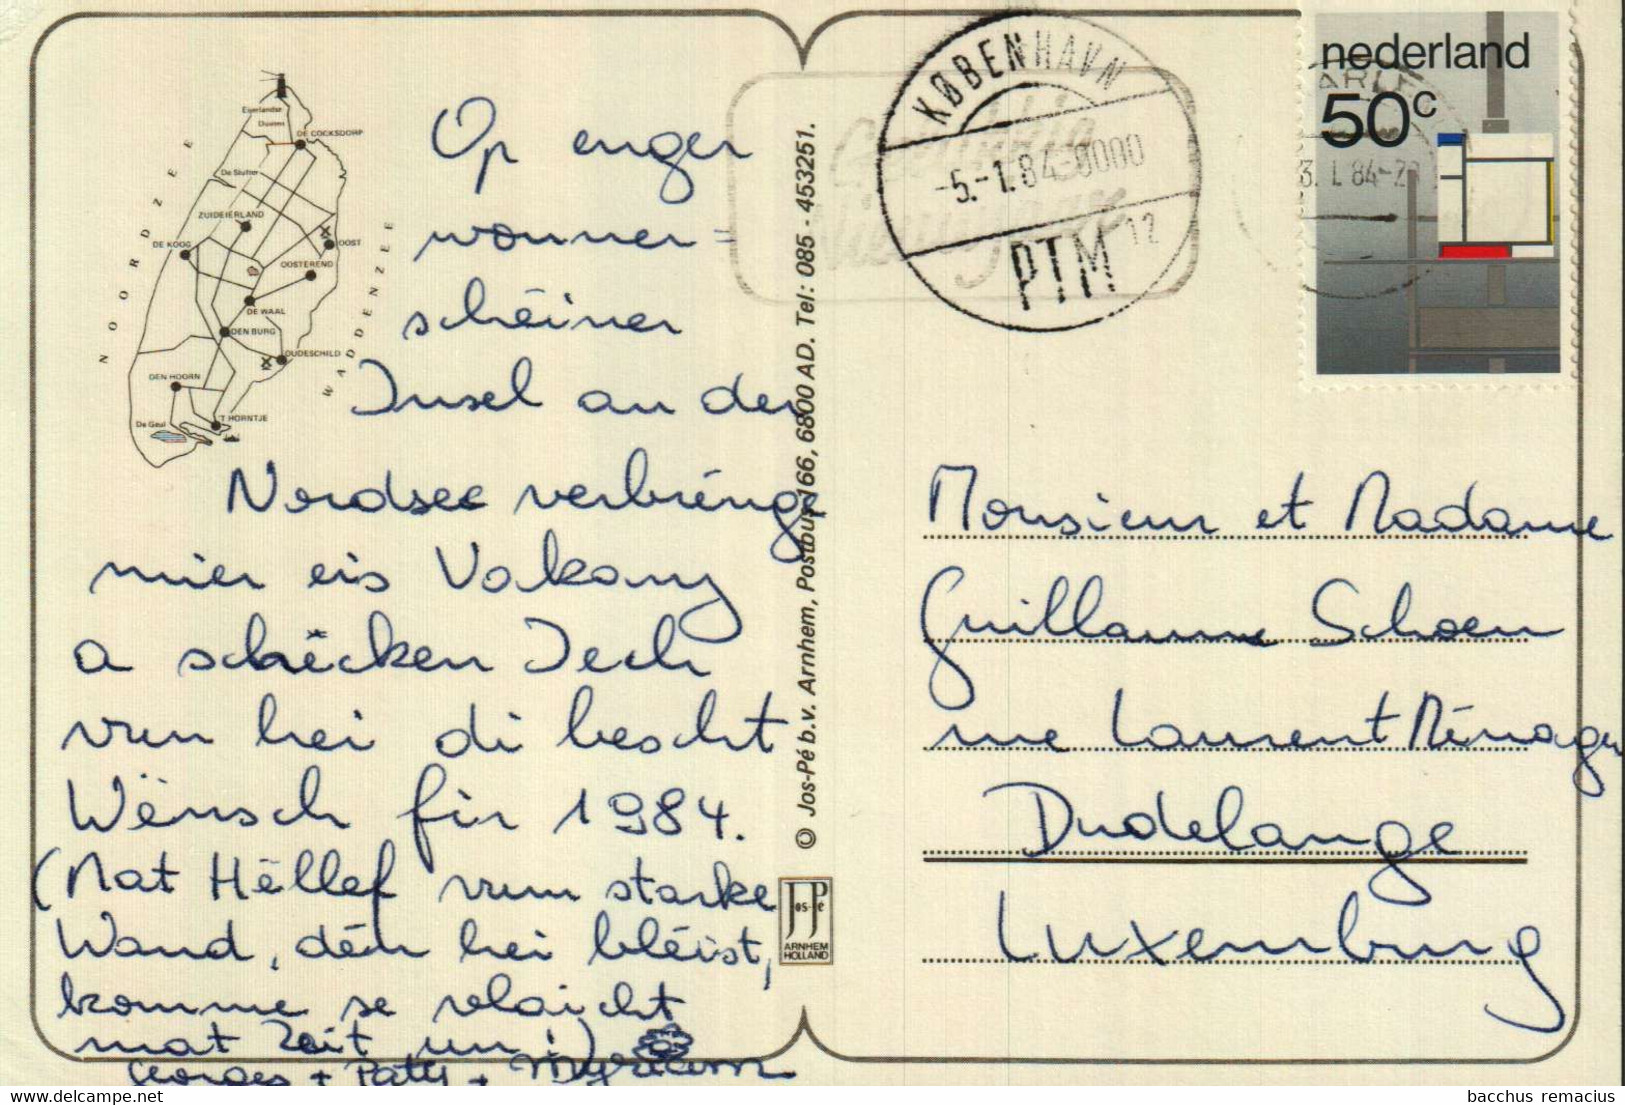 Op enger
wonner=
schéiner
Insel an der
Nordsee verbréng
mier eis Vakanz
a schécken Iech
vun hei di bescht
Wënsch fir 1984.
(Mat Hëllef vum starke
Wand, dén hei bléist,
komme se vlaicht
mat Zeit un!)
Georges + Patty + Myriam
NOORDZEE
WADDENZEE
Eijerlandse
Duinen
DE COCKSDORP
De Slufter
ZUIDEIERLAND
DE KOOG
OOST
OOSTEREND
DE WAAL
DEN BURG
OUDESCHILD
DEN HOORN
De Geul
'T HORNTJE
© Jos-Pé b.v. Arnhem, Postbus 166, 6800 AD. Tel: 085 - 453251.
Jos-Pé
ARNHEM
HOLLAND
KØBENHAVN
-5.-1.84-0000
PTM
12
nederland
50c
3.I.84
Monsieur et Madame
Guillaume Schoen
rue Laurent Ménager
Dudelange
Luxemburg
bacchus remacius